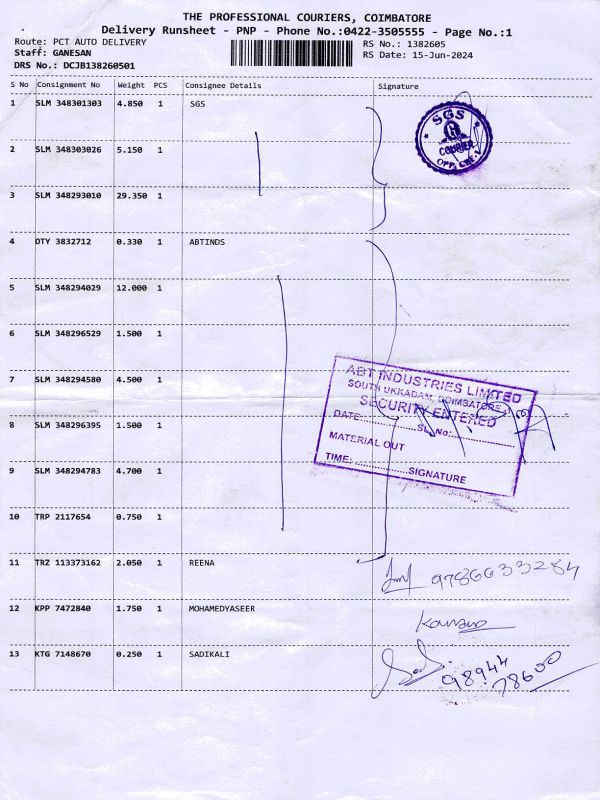 THE PROFESSIONAL COURIERS, COIMBATORE
Delivery Runsheet - PNP - Phone No.:0422-3505555 - Page No.:1
Route: PCT AUTO DELIVERY RS No.: 1382605
Staff: GANESAN RS Date: 15-Jun-2024
DRS No.: DCJB138260501
S No Consignment No Weight PCS Consignee Details Signature
1 SLM 348301303 4.850 1 SGS
SGS
COURIER
2 SLM 348303026 5.150 1
3 SLM 348293010 29.350 1
4 OTY 3832712 0.330 1 ABTINDS
5 SLM 348294029 12.000 1
6 SLM 348296529 1.500 1
7 SLM 348294580 4.500 1
ABT INDUSTRIES LIMITED
SOUTH UKKADAM, COIMBATORE
SECURITY ENTERED
DATE:............SL.No.............
MATERIAL OUT
TIME: ............SIGNATURE
8 SLM 348296395 1.500 1
9 SLM 348294783 4.700 1
10 TRP 2117654 0.750 1
11 TRZ 113373162 2.050 1 REENA 9786633284
12 KPP 7472840 1.750 1 MOHAMEDYASEER
13 KTG 7148670 0.250 1 SADIKALI
98944
78600